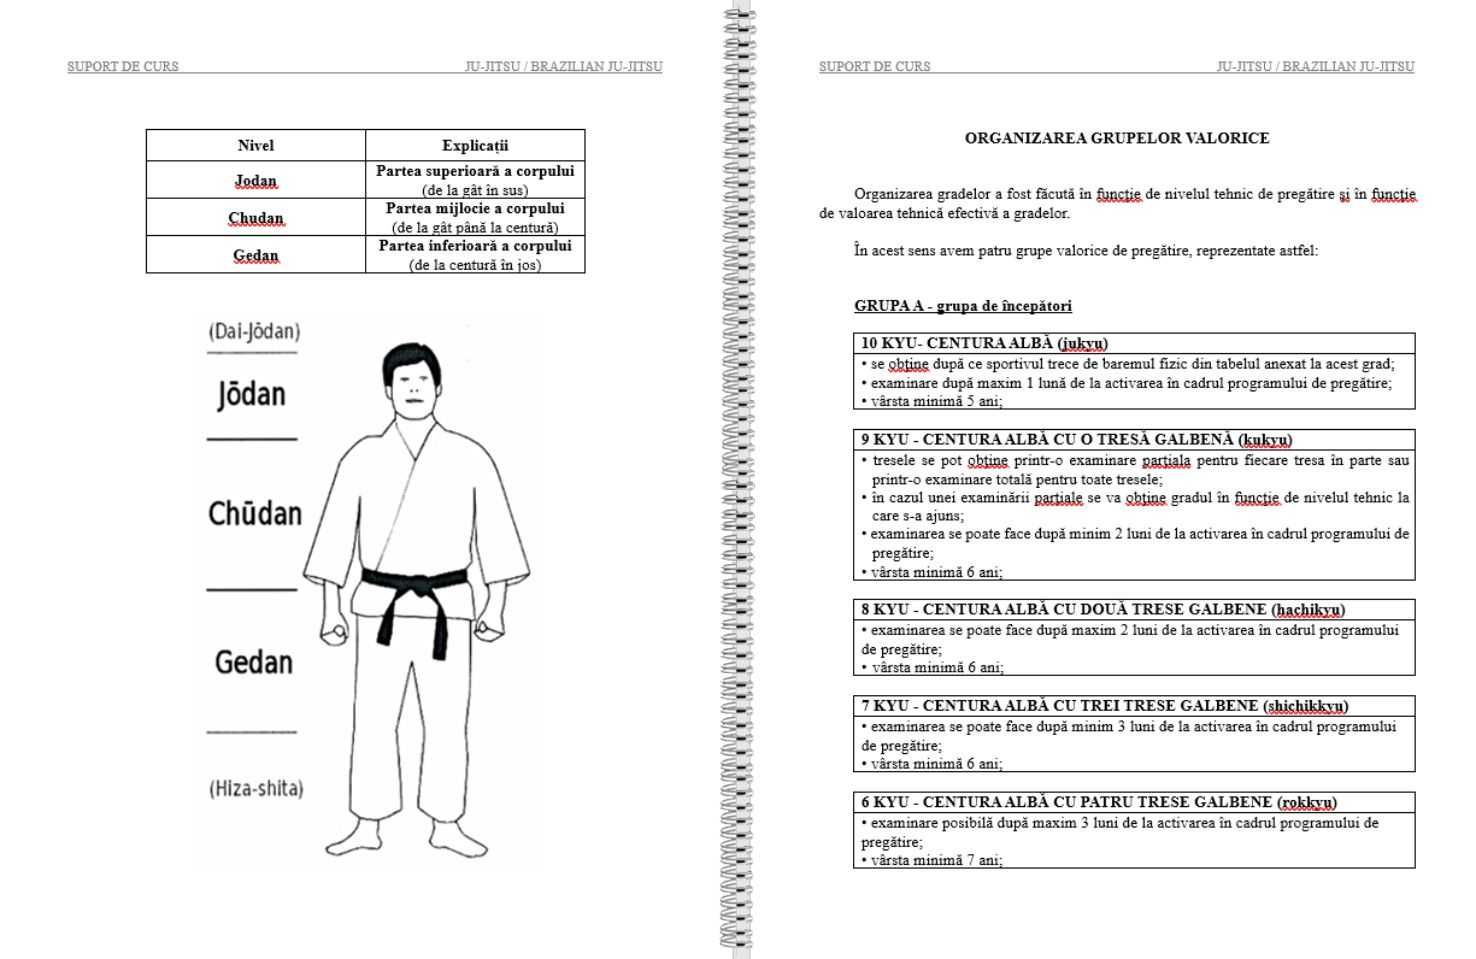 SUPORT DE CURS JU-JITSU / BRAZILIAN JU-JITSU
Nivel Explicații
Jodan Partea superioară a corpului
(de la gât în sus)
Chudan Partea mijlocie a corpului
(de la gât până la centură)
Gedan Partea inferioară a corpului
(de la centură în jos)
(Dai-Jōdan)
Jōdan
Chūdan
Gedan
(Hiza-shita)
SUPORT DE CURS JU-JITSU / BRAZILIAN JU-JITSU
ORGANIZAREA GRUPELOR VALORICE
Organizarea gradelor a fost făcută în funcție de nivelul tehnic de pregătire și în funcție
de valoarea tehnică efectivă a gradelor.
În acest sens avem patru grupe valorice de pregătire, reprezentate astfel:
GRUPA A - grupa de începători
10 KYU- CENTURA ALBĂ (jukyu)
• se obține după ce sportivul trece de baremul fizic din tabelul anexat la acest grad;
• examinare după maxim 1 lună de la activarea în cadrul programului de pregătire;
• vârsta minimă 5 ani;
9 KYU - CENTURA ALBĂ CU O TRESĂ GALBENĂ (kukyu)
• tresele se pot obține printr-o examinare parțiala pentru fiecare tresa în parte sau
printr-o examinare totală pentru toate tresele;
• în cazul unei examinării parțiale se va obține gradul în funcție de nivelul tehnic la
care s-a ajuns;
• examinarea se poate face după minim 2 luni de la activarea în cadrul programului de
pregătire;
• vârsta minimă 6 ani;
8 KYU - CENTURA ALBĂ CU DOUĂ TRESE GALBENE (hachikyu)
• examinarea se poate face după maxim 2 luni de la activarea în cadrul programului
de pregătire;
• vârsta minimă 6 ani;
7 KYU - CENTURA ALBĂ CU TREI TRESE GALBENE (shichikkyu)
• examinarea se poate face după minim 3 luni de la activarea în cadrul programului
de pregătire;
• vârsta minimă 6 ani;
6 KYU - CENTURA ALBĂ CU PATRU TRESE GALBENE (rokkyu)
• examinare posibilă după maxim 3 luni de la activarea în cadrul programului de
pregătire;
• vârsta minimă 7 ani;